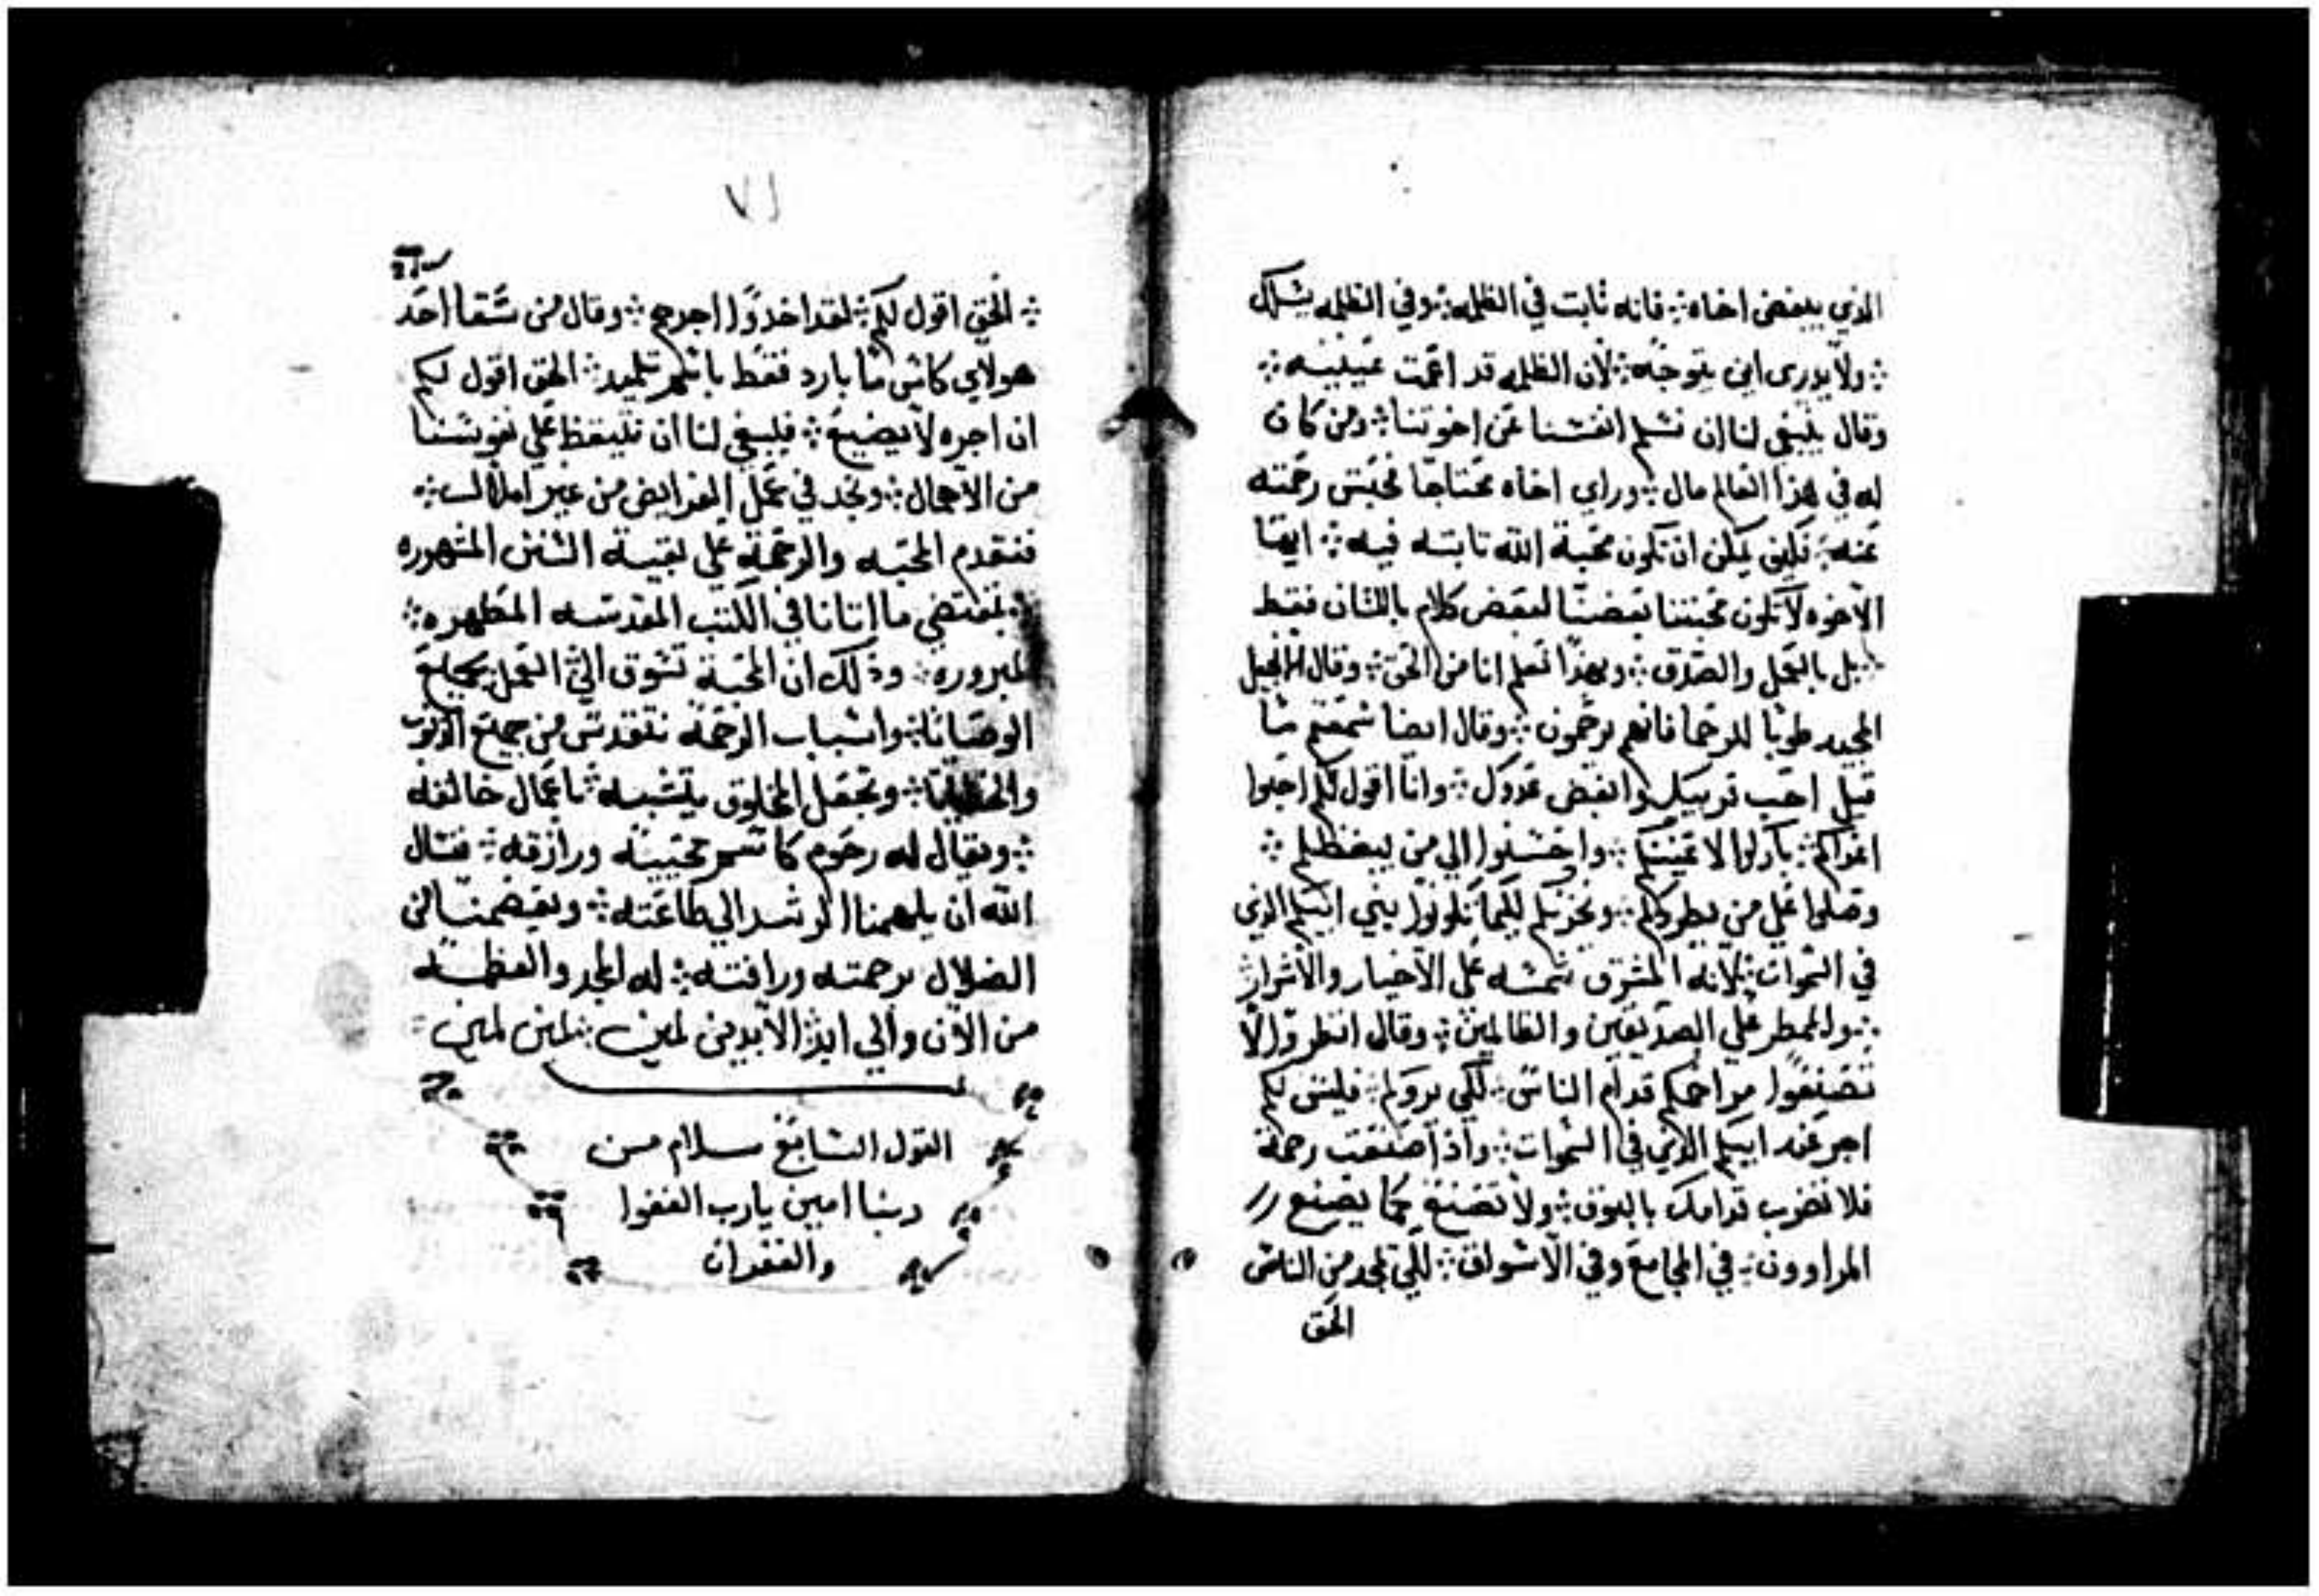 الذي يبغض اخاه ܀ فانه ثابت في الظلمه ܀ وفي الظلمه يسلك
܀ ولا يدري اين يتوجه ܀ لان الظلمه قد اعمت عينيه ܀
وقال ينبغي لنا ان نسلم انفسنا عن اخوتنا ܀ ومن كان
له في هذا العالم مال ܀ وراي اخاه محتاجا فحبس رحمته
عنه ܀ فكيف يمكن ان تكون محبة الله تابته فيه ܀ ايها
الاخوه لا تكون محبتنا بعضنا لبعض كلام باللسان فقط
܀ بل بالعمل والصدق ܀ وبهذا نعلم انا من الحق ܀ وقال الانجيل
المجيد طوبا للرحما فانهم يرحمون ܀ وقال ايضا سمعتم ما
قيل احب قريبك وابغض عدوك ܀ وانا اقول لكم احبوا
اعداكم ܀ باركوا لاعنيكم ܀ واحسنوا الي من يبغظكم ܀
وصلوا علي من يطردكم ܀ ويحزنكم لكيما تكونوا بني ابيكم الذي
في السموات ܀ لانه المشرق شمسه علي الاخيار والاشرار
܀ والممطر علي الصديقين والظالمين ܀ وقال انظروا لا
تصنعوا مراحمكم قدام الناس ܀ لكي يروكم ܀ فليس لكم
اجر عند ابيكم الذي في السموات ܀ واذا صنعت رحمة
فلا تضرب قدامك بالبوق ܀ ولا تصنع كما يصنع
المراوون ܀ في المجامع وفي الاسواق ܀ لكي تمجد من الناس
الحق
٧١
܀ الحق اقول لكم ܀ لقد اخدوا اجرهم ܀ وقال من سقا احد
هولاي كاس ما بارد فقط باسم تلميد ܀ الحق اقول لكم
ان اجره لا يضيع ܀ فينبغي لنا ان نتيقظ علي نفوسنا
من الاهمال ܀ ونجد في عمل الفرايض من غير املال ܀
فنقدم المحبه والرحمة علي بقية السنن المشهوره
بمقتضي ما اتانا في الكتب المقدسه المطهره ܀
المبروره ܀ وذلك ان المحبة تسوق الي العمل بجميع
الوصايا ܀ واسباب الرحمة تتقدس من جميع الذنوب
والخطايا ܀ وتجعل المخلوق يتشبه باعمال خالقه
܀ ويقال له رحوم كاسم محييه ورازقه ܀ فنسال
الله ان يلهمنا الرشد الي طاعته ܀ ويعصمنا من
الضلال برحمته ورافته ܀ له المجد والعظمه
من الان والي ابد الابدين امين ܀ امين امين ܀
القول السابع سلام من
ربنا امين يارب العفوا
والغفران